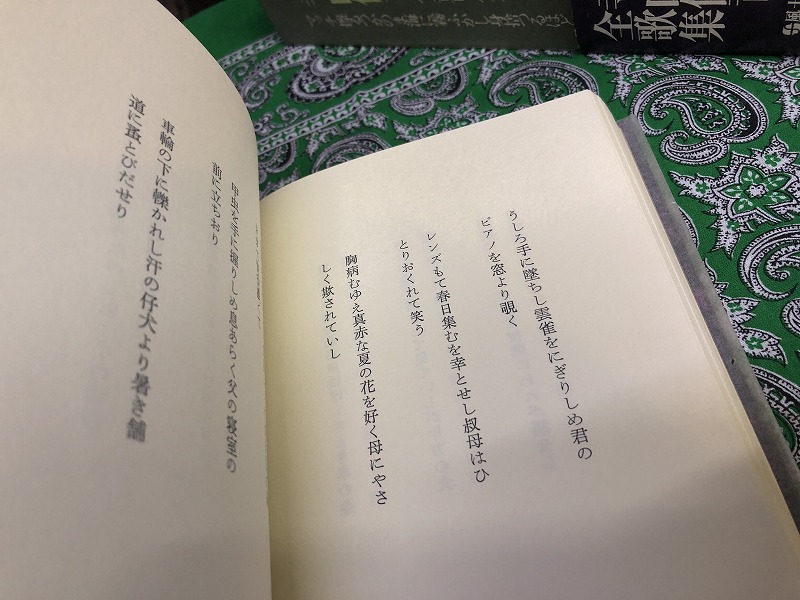 マッチ擦るつかのま海に霧ふかし身捨つるほど
全歌集
うしろ手に墜ちし雲雀をにぎりしめ君の
ピアノを窓より覗く
レンズもて春日集むを幸とせし叔母はひ
とりおくれて笑う
胸病むゆえ真赤な夏の花を好く母にやさ
しく欺されていし
甲虫を手に握りしめ息あらく父の寝室の
前に立ちおり
車輪の下に轢かれし汗の仔犬より暑き舗
道に蚤とびだせり